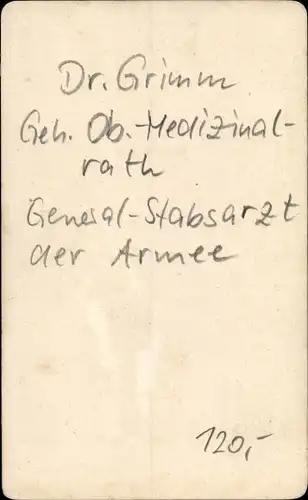 Dr. Grimm
Geh. Ob.-Medizinal-
rath
General-Stabsarzt
der Armee
120,-